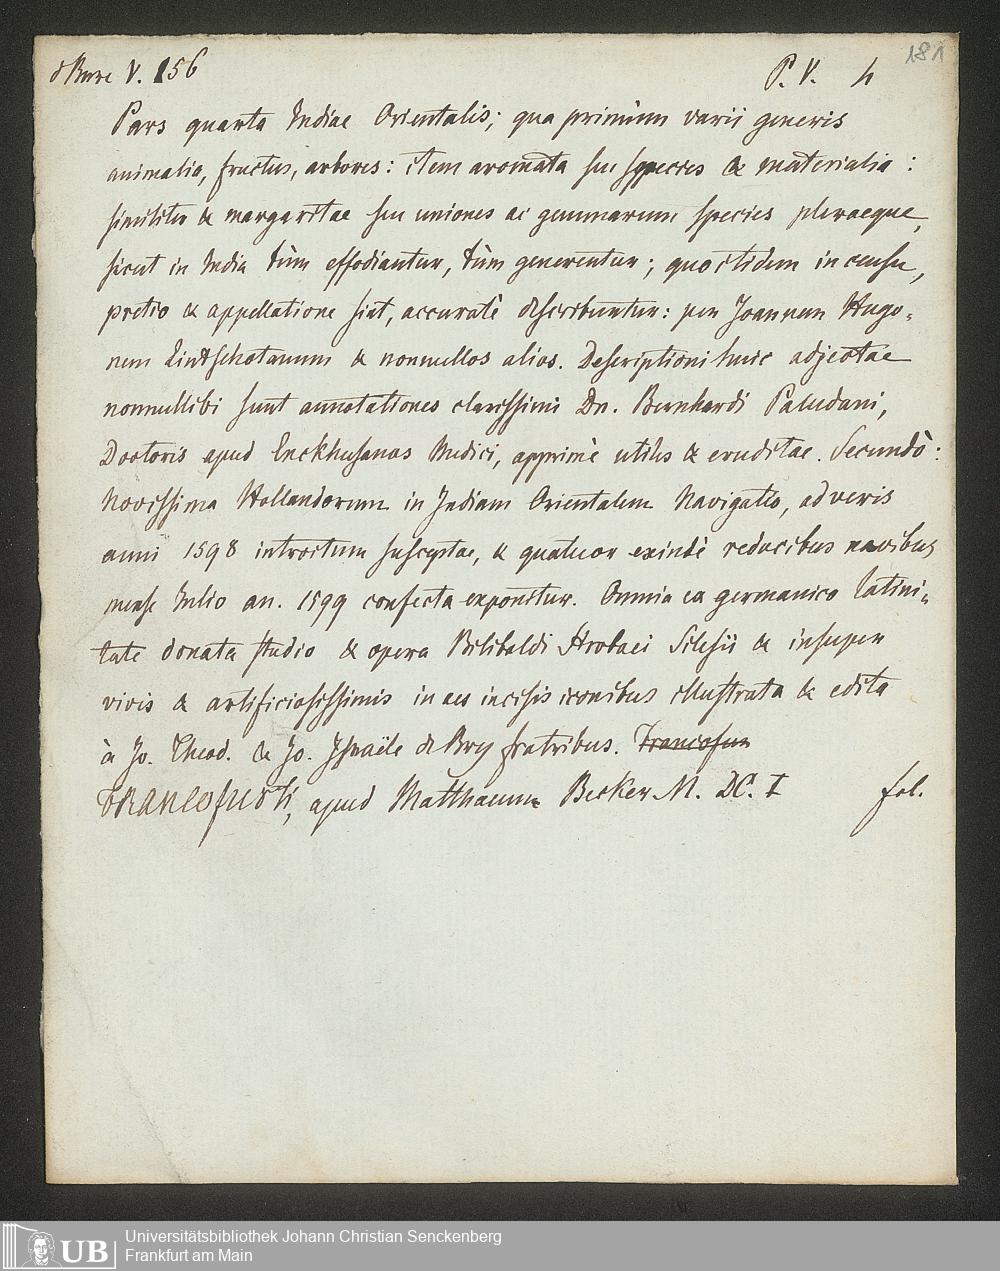 d Bure V. 156
P. V. h
181
Pars quarta Indiae Orientalis; qua primùm varii generis
animalia, fructus, arbores: item aromata seu species & materialia:
similiter & margaritae seu uniones ac gemmarum species pleraeque,
sicut in India tùm effodiantur, tùm generentur; quo itidem in censu,
pretio & appellatione sint, accuratè describuntur: per Joannem Hugo-
nem Lintschotanum & nonnullos alios. Descriptioni huic adjectae
nonnullibi sunt annotationes clarissimi Dn. Bernhardi Paludani,
Doctoris apud Enckhusanos Medici, apprimè utiles & eruditae. Secundò:
Novissima Hollandorum in Indiam Orientalem Navigatio, ad veris
anni 1598 introitum susceptae, & quatuor exindè reducibus navibus
mense Julio an. 1599 confecta exponitur. Omnia ex germanico Latini-
tate donata studio & opera Bilibaldi Strobaei Silesii & insuper
vivis & artificiosissimis in aes incisis iconibus illustrata & edita
à Jo. Theod. & Jo. Israële de Bry fratribus. Francofur
Francofurti, apud Matthaeum Becker M. DC. I fol.
UB
Universitätsbibliothek Johann Christian Senckenberg
Frankfurt am Main